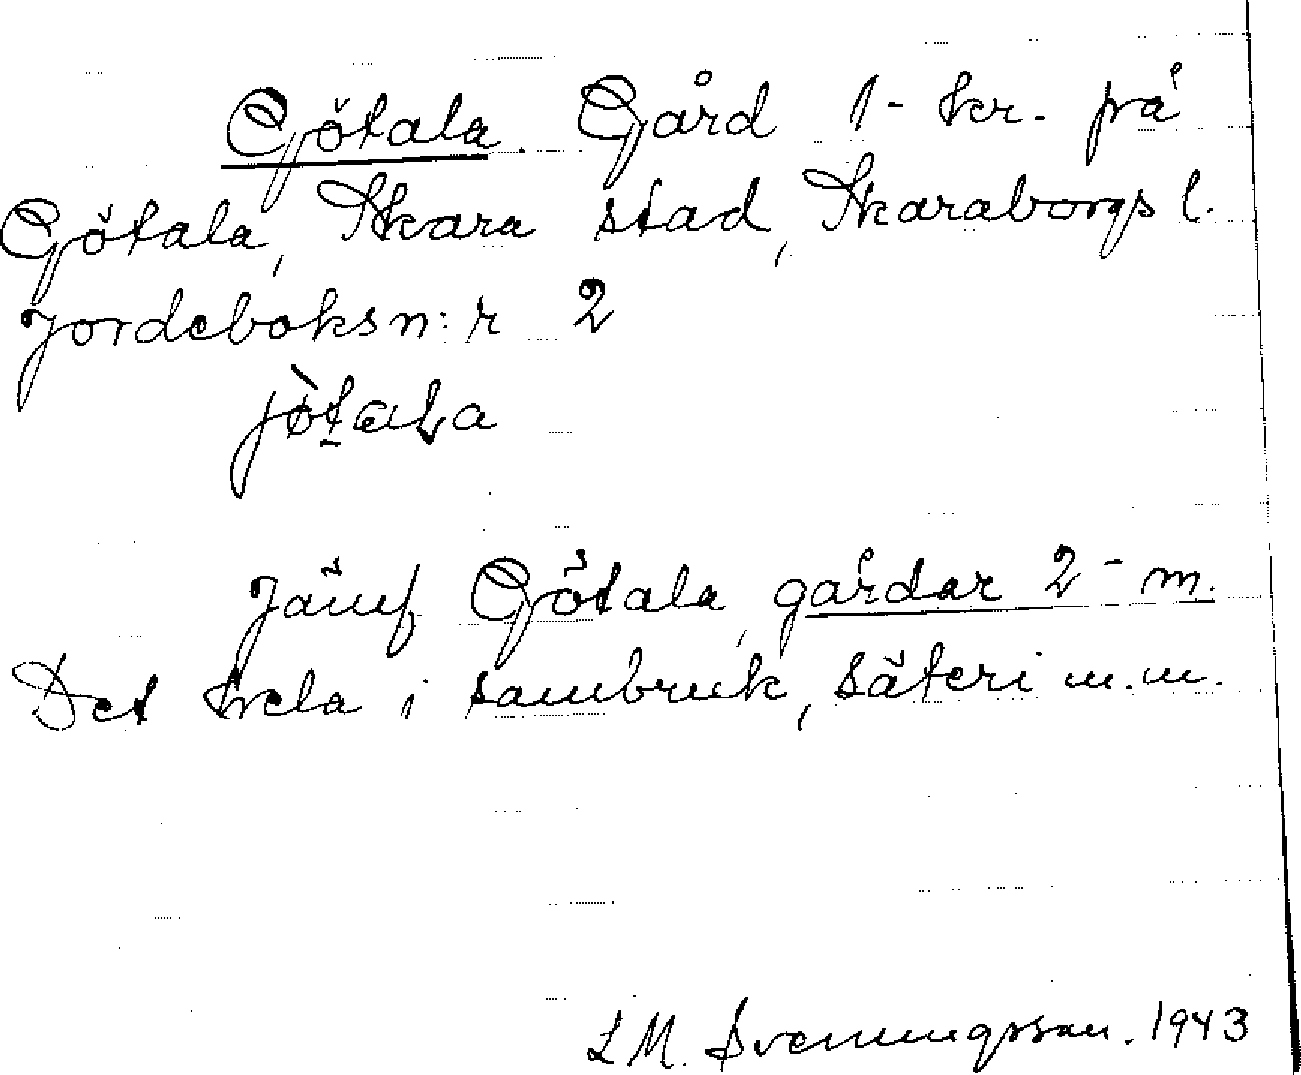 Götala. Gård 1- kr. på
Götala, Skara stad, Skaraborgs l.
Jordeboksn:r 2
jòtala
Jämf Götala, gårdar 2- m.
Det hela i sambruk, säteri m.m.
L M. Svenungsson. 1943